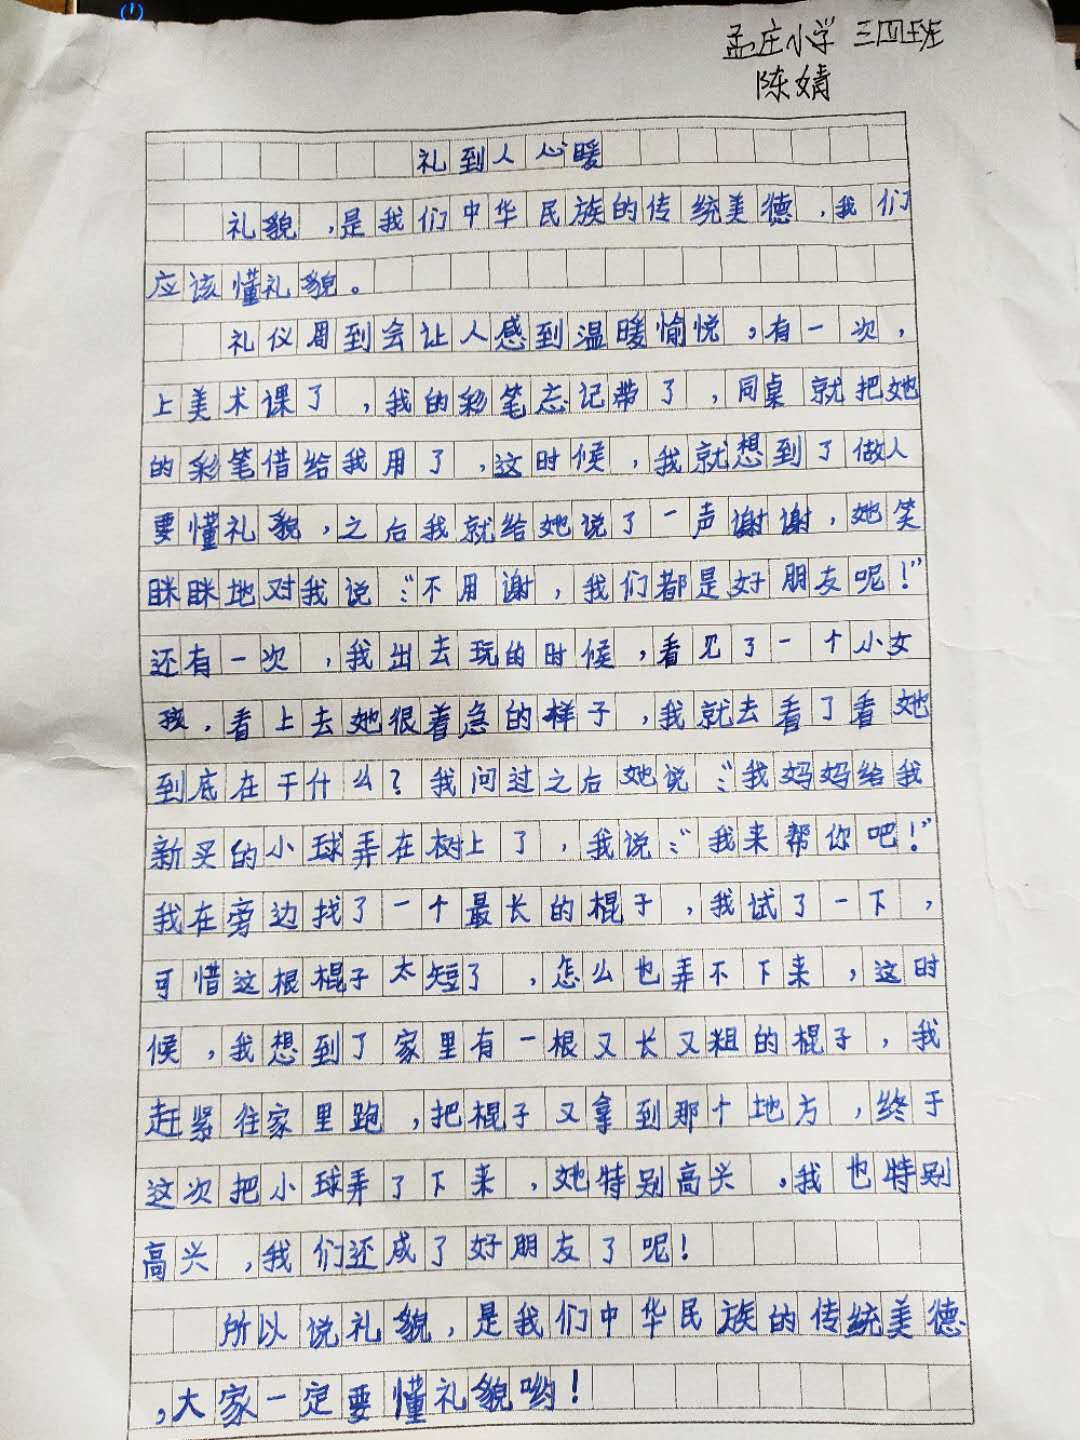 孟庄小学 三四班
陈婧
礼到人心暖
礼貌,是我们中华民族的传统美德,我们
应该懂礼貌。
礼仪周到会让人感到温暖愉悦,有一次,
上美术课了,我的彩笔忘记带了,同桌就把她
的彩笔借给我用了,这时候,我就想到了做人
要懂礼貌,之后我就给她说了一声谢谢,她笑
眯眯地对我说:“不用谢,我们都是好朋友呢!”
还有一次,我出去玩的时候,看见了一个小女
孩,看上去她很着急的样子,我就去看了看她
到底在干什么?我问过之后她说:“我妈妈给我
新买的小球弄在树上了,我说:“我来帮你吧!”
我在旁边找了一个最长的棍子,我试了一下,
可惜这根棍子太短了,怎么也弄不下来,这时
候,我想到了家里有一根又长又粗的棍子,我
赶紧往家里跑,把棍子又拿到那个地方,终于
这次把小球弄了下来,她特别高兴,我也特别
高兴,我们还成了好朋友了呢!
所以说礼貌,是我们中华民族的传统美德
,大家一定要懂礼貌哟!